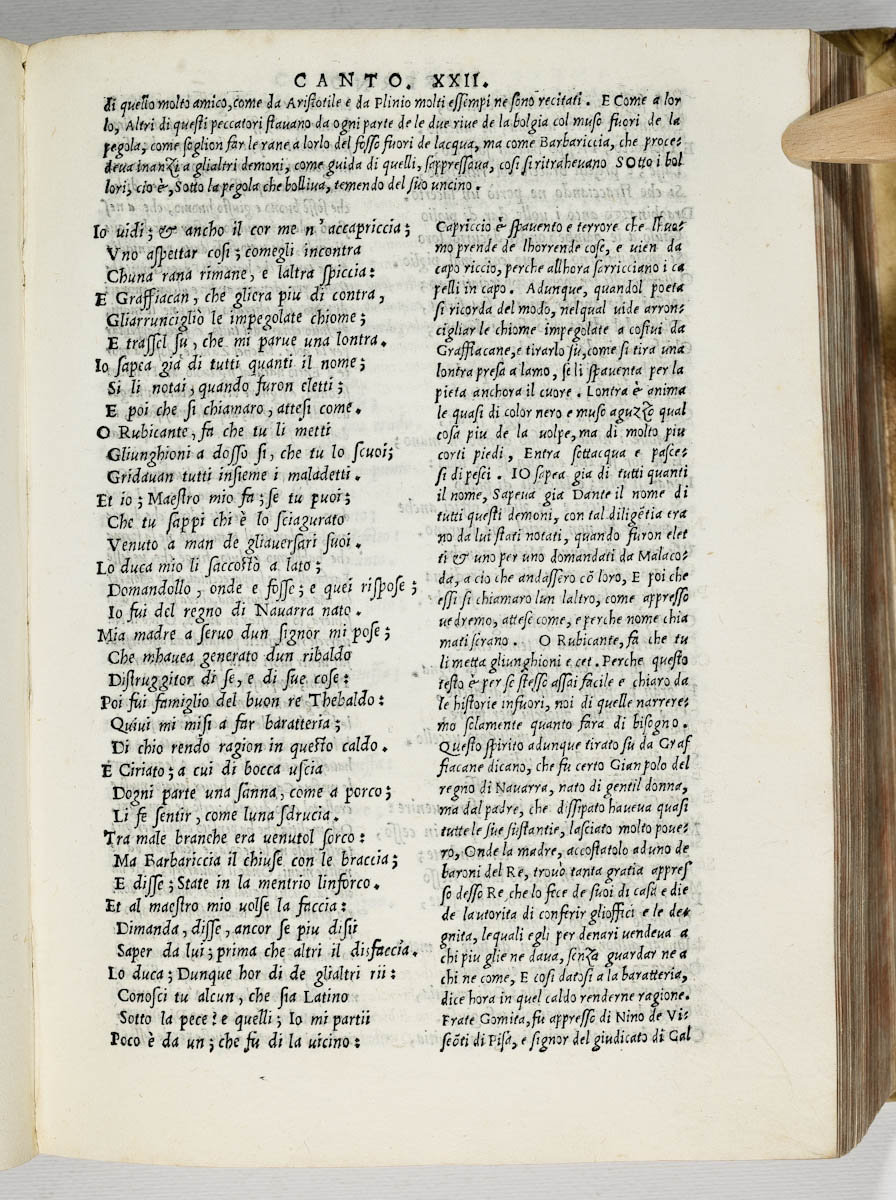 CANTO. XXII.
di quello molto amico, come da Aristotile e da Plinio molti essempi ne sono recitati. E Come a lor
lo, Altri di questi peccatori stavano da ogni parte de le due rive de la bolgia col muso fuori de la
pegola, come soglion far le rane a lorlo del fosso fuori de lacqua, ma come Barbariccia, che proce-
deva inanzi a glialtri demoni, come guida di quelli, sappressava, cosi si ritrahevano SOtto i bol
lori, cio è, Sotto la pegola che bolliva, temendo del suo uncino.
Io uidi; & ancho il cor me n'accapriccia;
Vno aspettar cosi; comegli incontra
Chuna rana rimane, e laltra spiccia:
E Graffiacan, che gliera piu di contra,
Gliarrunciglìò le impegolate chiome;
E trassel su, che mi parue una lontra.
Io sapea gia di tutti quanti il nome;
Si li notai, quando furon eletti;
E poi che si chiamaro, attesi come.
O Rubicante, fa che tu li metti
Gliunghioni a dosso si, che tu lo scuoi;
Gridauan tutti insieme i maladetti.
Et io; Maestro mio fa; se tu puoi;
Che tu sappi chi è lo sciagurato
Venuto a man de gliauersari suoi.
Lo duca mio li saccostò a lato;
Domandollo, onde e fosse; e quei rispose;
Io fui del regno di Nauarra nato.
Mia madre a seruo dun signor mi pose;
Che mhauea generato dun ribaldo
Distruggitor di se, e di sue cose:
Poi fui famiglio del buon re Thebaldo:
Quiui mi misi a far baratteria;
Di chio rendo ragion in questo caldo.
E Ciriato; a cui di bocca uscia
Dogni parte una sanna, come a porco;
Li fe sentir, come luna sdrucia.
Tra male branche era uenutol sorco:
Ma Barbariccia il chiuse con le braccia;
E disse; State in la mentrio linforco.
Et al maestro mio uolse la faccia:
Dimanda, disse, ancor se piu disii
Saper da lui; prima che altri il disfaccia.
Lo duca; Dunque hor di de glialtri rii:
Conosci tu alcun, che sia Latino
Sotto la pece? e quelli; Io mi partii
Poco è da un; che fu di la uicino:
Capriccio è spauento e terrore che lhuo-
mo prende de lhorrende cose, e uien da
capo riccio, perche allhora sarricciano i ca
pelli in capo. Adunque, quandol poeta
si ricorda del modo, nelqual uide arron-
cigliar le chiome impegolate a costui da
Graffiacane, e tirarlo su, come si tira una
lontra presa a lamo, se li spauenta per la
pieta anchora il cuore. Lontra è anima
le quasi di color nero e muso aguzzo qual
cosa piu de la uolpe, ma di molto piu
corti piedi, Entra sottacqua e pasce-
si di pesci. IO sapea gia di tutti quanti
il nome, Sapeua gia Dante il nome di
tutti questi demoni, con tal diligẽtia era
no da lui stati notati, quando furon elet
ti & uno per uno domandati da Malaco-
da, a cio che andassero cõ loro, E poi che
essi si chiamaro lun laltro, come appresso
uedremo, attese come, e perche nome chia
mati serano. O Rubicante, fa che tu
li metta gliunghioni e cet. Perche questo
testo è per se stesso assai facile e chiaro da
le historie infuori, noi di quelle narrere-
mo solamente quanto fara di bisogno.
Questo spirito adunque tirato su da Graf
fiacane dicano, che fu certo Gianpolo del
regno di Nauarra, nato di gentil donna,
ma dal padre, che dissipato haueva quasi
tutte le sue sustantie, lasciato molto poue-
ro, Onde la madre, accostatolo ad uno de
baroni del Re, trovo tanta gratia appres
so desso Re, che lo fece de suoi di casa e die
de lautorita di conferir glioffici e le de-
gnita, lequali egli per denari vendeua a
chi piu glie ne daua, senza guardar ne a
chi ne come, E cosi datosi a la baratteria,
dice hora in quel caldo renderne ragione.
Frate Gomita, fu appresso di Nino de Vi-
scõti di Pisa, e signor del giudicato di Gal